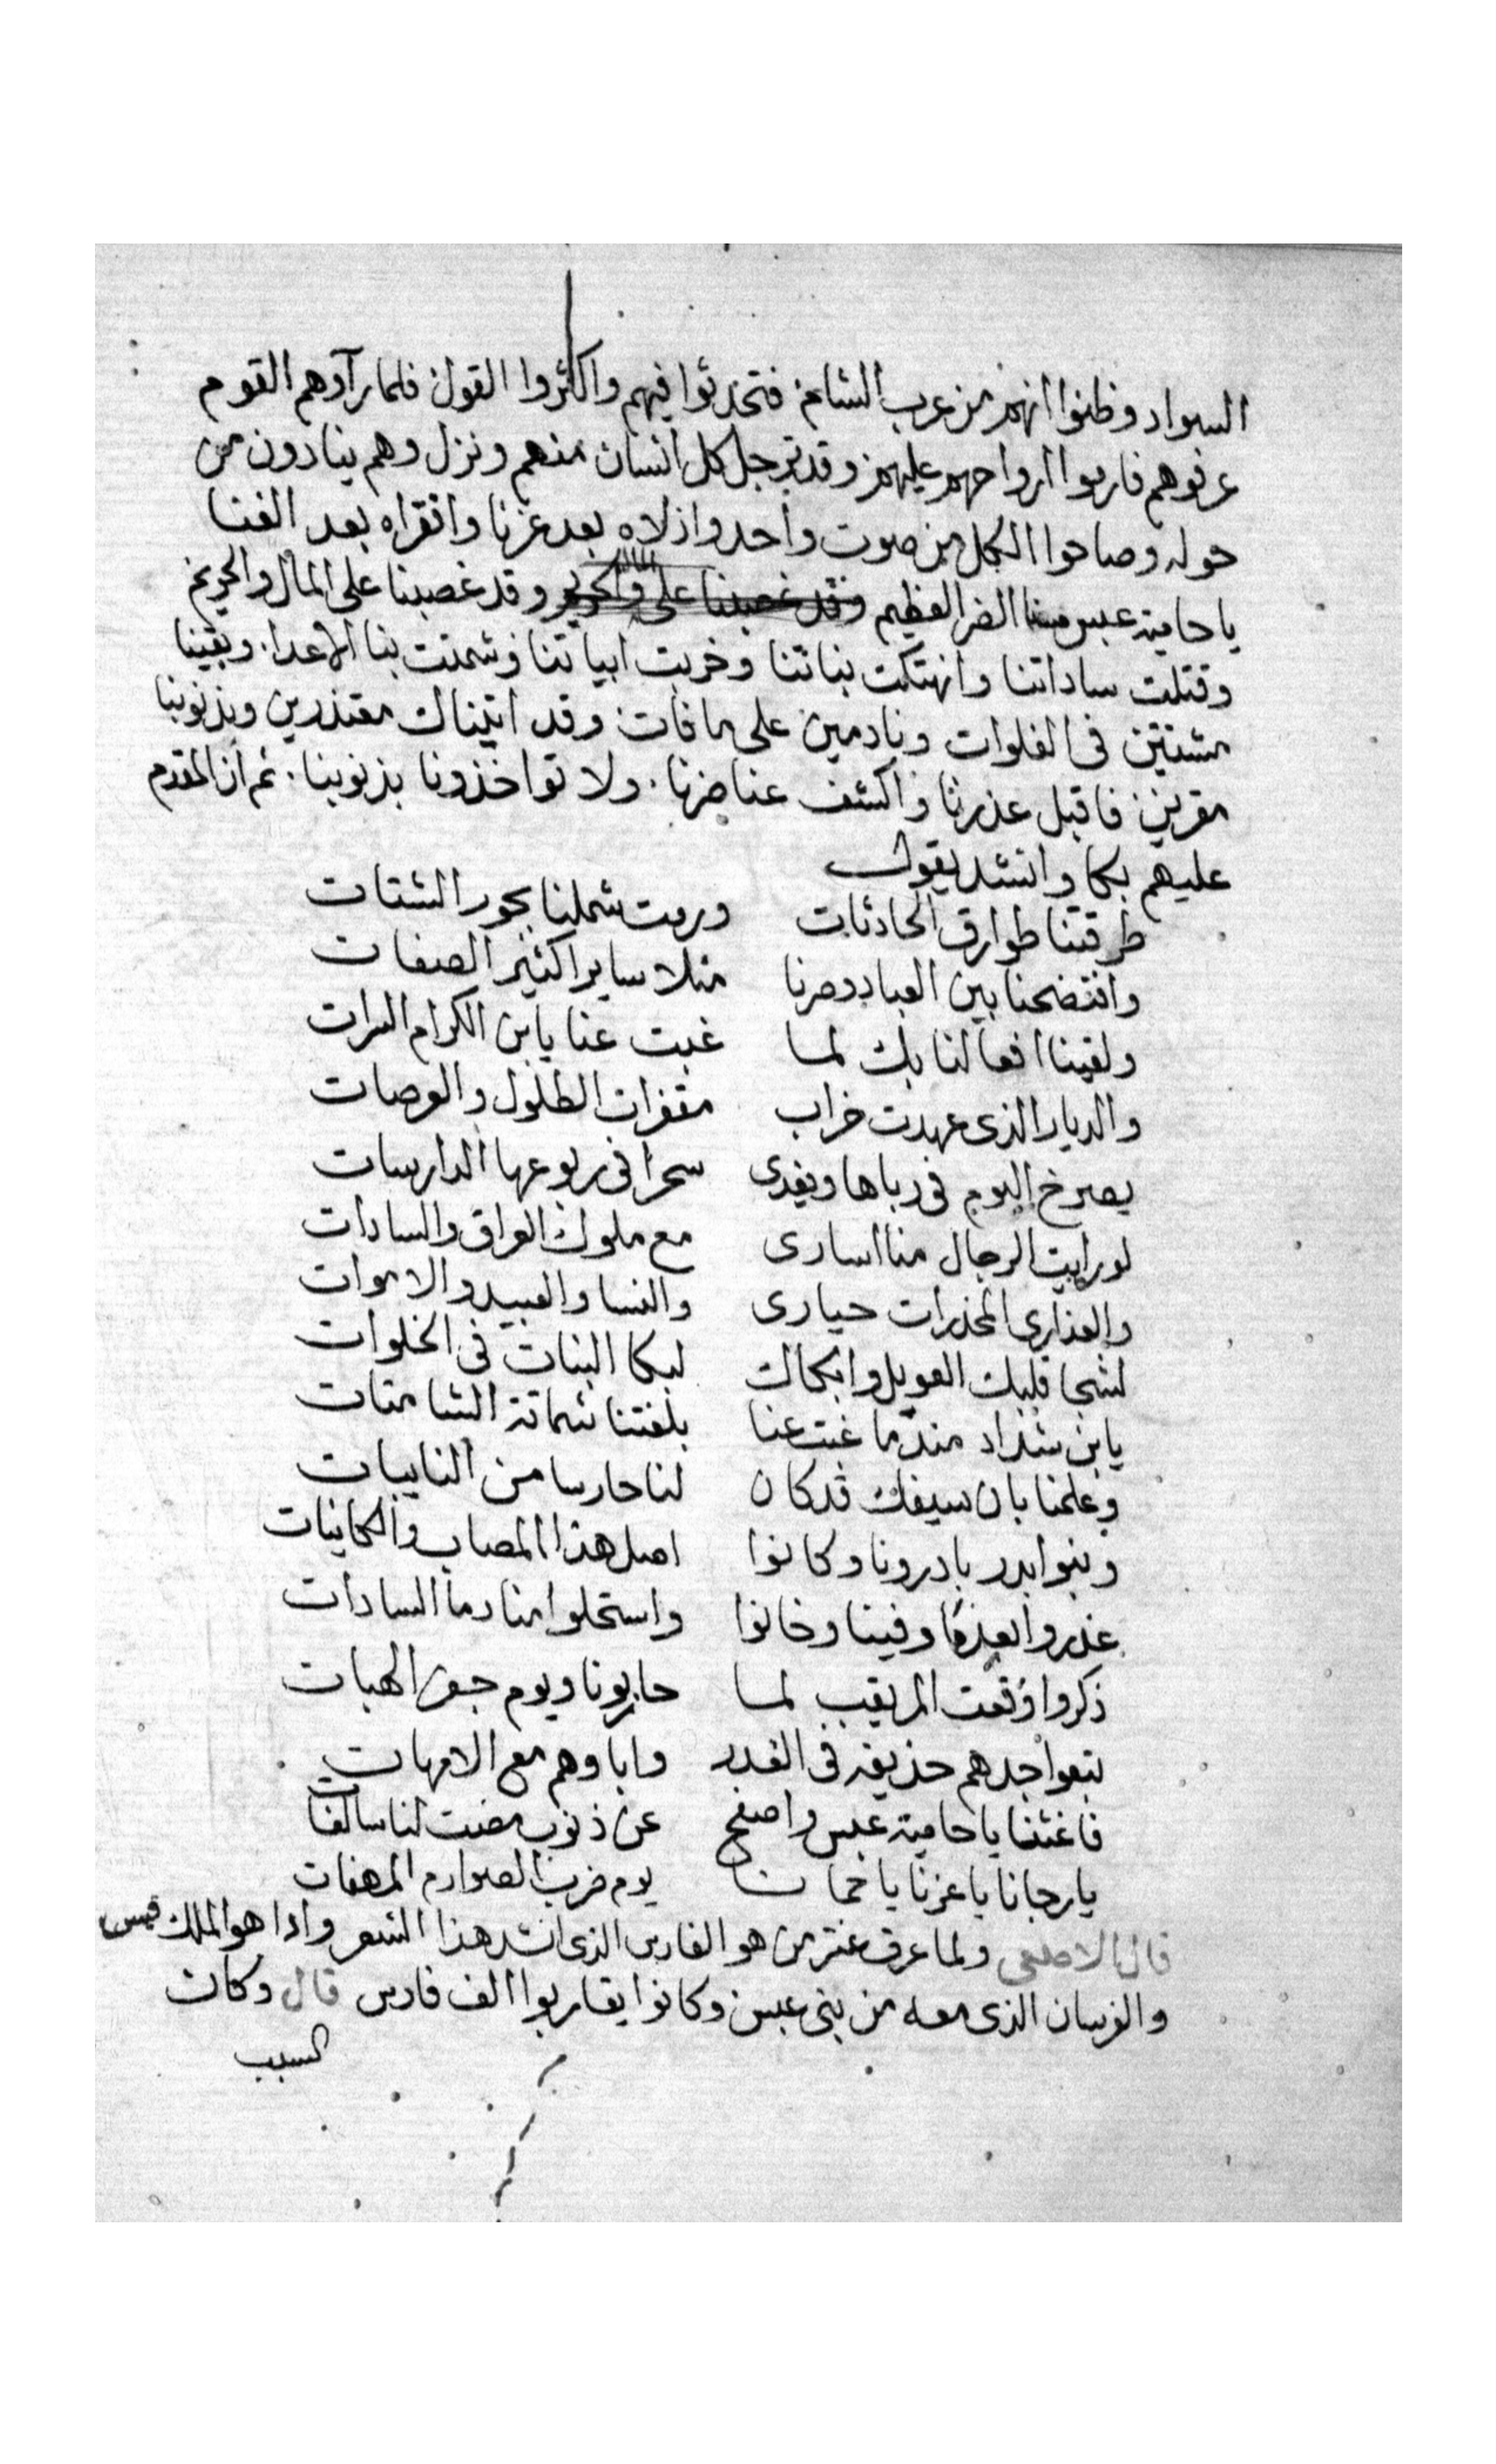 السواد وظنوا انهم من عرب الشام فتحدثوا فيهم واكثروا القول فلما راوهم القوم
عرفوهم فاربوا ارواحهم عليهم وقد ترجل كل انسان منهم ونزل وهم ينادون من
حوله وصاحوا الكل من صوت واحد واذلاه بعد عزنا وافقراه بعد الغنا
يا حامية عبس مسنا الضر العظيم وقد غصبنا على المال والحريم
وقتلت ساداتنا وانهتكت بناتنا وخربت ابياتنا وشمتت بنا الاعدا وبقينا
مشتتين فى الفلوات ونادمين على ما فات وقد اتيناك معتذرين وبذنوبنا
مقرين فاقبل عذرنا واكشف عنا ضرنا ولا تواخذونا بذنوبنا ثم ان المقدم
عليهم بكا وانشد يقول
طرقتنا طوارق الحادثات ورمت شملنا بجور الشتات
وافتضحنا بين العباد وصرنا مثلا سايرا كثير الصفات
ولقينا افعالنا بك لما غبت عنا يابن الكرام السرات
والديار الذى عهدت خراب مقفرات الطلول والعرصات
يصرخ البوم فى رباها ويغدى سحرا فى ربوعها الدارسات
لو رايت الرجال منا اسارى مع ملوك العراق والسادات
والعذارى المخدرات حيارى والنسا والعبيد والاموات
لشجا قلبك العويل وابكاك لبكا البنات فى الخلوات
يابن شداد منذ ما غبت عنا بلغتنا شماتة الشامتات
وعلمنا بان سيفك قد كان لنا حارسا من النايبات
وبنوا بدر بادرونا وكانوا اصل هذا المصاب والكاينات
غدروا بعدما وفينا وخانوا واستحلوا منا دما السادات
ذكروا وقعت المريقب لما حاربونا ويوم جفر الهبات
تبعوا جدهم حذيفه فى الغدر واباوهم مع الامهات
فاغثنا يا حامية عبس واصفح عن ذنوب مضت لنا سالفات
يارجانا ياعزنا يا حمانا يوم ضرب الصوارم المرهفات
قال الاصمعى ولما عرف عنتر من هو الفارس الذى انشد هذا الشعر واذا هو الملك قيس
والفرسان الذى معه من بنى عبس وكانوا يقاربوا الف فارس قال وكان
السبب